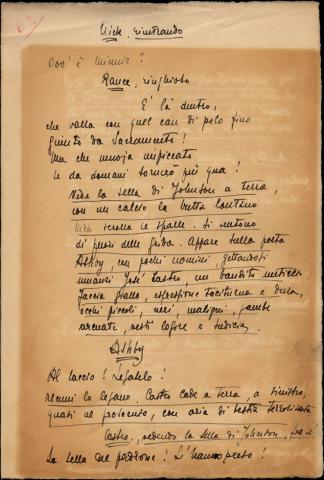 62
Nick, rientrando
Dov' è Minnie?
Rance, ringhioso
È là dentro,
che balla con quel can di pelo fino
giunto da Sacramento!
Ma che muoja impiccato
se da domani torna più qua!
Vede la sella di Johnson a terra,
con un calcio la butta lontano
Nick scrolla le spalle. Si sentono
di fuori delle grida. Appare sulla porta
Ashby con pochi uomini, gettandosi
innanzi José Castro, un bandito meticcio
faccia gialla, espressione taciturna e dura,
occhi piccoli, neri, maligni, gambe
arcuate, vesti logore e sudicie.
Ashby
Al laccio! Legatelo!
alcuni lo legano. Castro cade a terra, a sinistra,
quasi al proscenio, con aria di bestia terrorizzata
Castro, vedendo la sella di Johnson,
La sella del padrone! L'hanno preso!